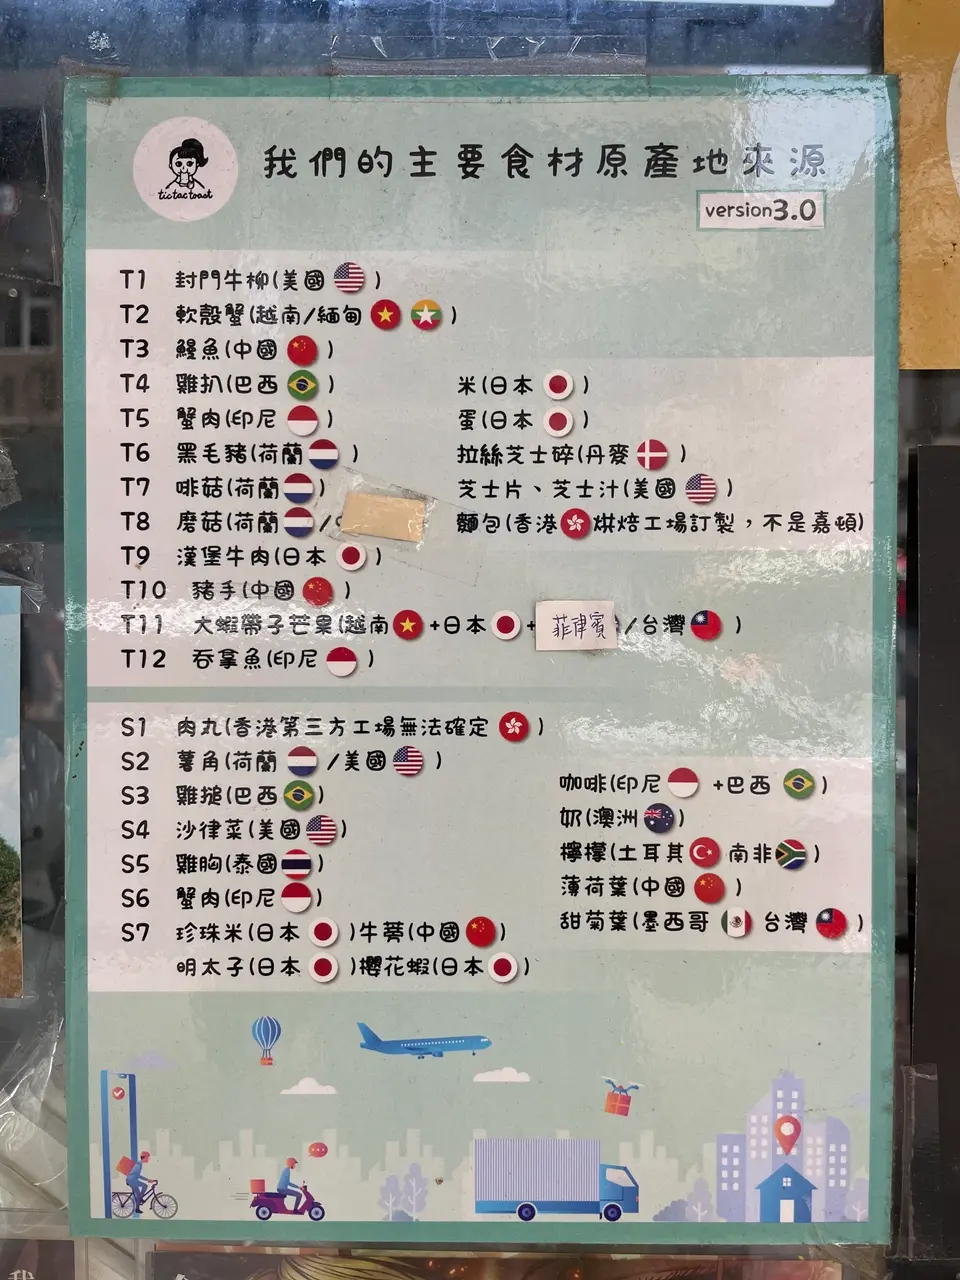 tictactoast
我們的主要食材原產地來源
version3.0
T1 封門牛柳(美國)
T2 軟殼蟹(越南/緬甸)
T3 鰻魚(中國)
T4 雞扒(巴西)
T5 蟹肉(印尼)
T6 黑毛豬(荷蘭)
T7 啡菇(荷蘭)
T8 磨菇(荷蘭/
T9 漢堡牛肉(日本)
T10 豬手(中國)
T11 大蝦帶子芒果(越南+日本+菲律賓/台灣)
T12 吞拿魚(印尼)
米(日本)
蛋(日本)
拉絲芝士碎(丹麥)
芝士片、芝士汁(美國)
麵包(香港烘焙工場訂製，不是嘉頓)
S1 肉丸(香港第三方工場無法確定)
S2 薯角(荷蘭/美國)
S3 雞搥(巴西)
S4 沙律菜(美國)
S5 雞胸(泰國)
S6 蟹肉(印尼)
S7 珍珠米(日本)牛蒡(中國)
明太子(日本)櫻花蝦(日本)
咖啡(印尼+巴西)
奶(澳洲)
檸檬(土耳其南非)
薄荷葉(中國)
甜菊葉(墨西哥 台灣)